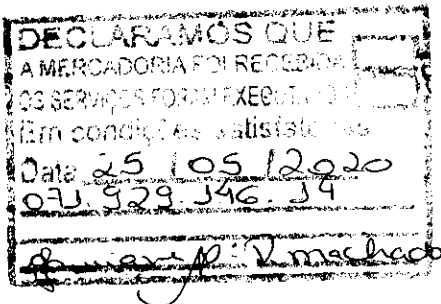 DECLARAMOS QUE
A MERCADORIA FOI RECEBIDA
OS SERVIÇOS FORAM EXECUTADOS
Em condições satisfatórias
Data 25 / 05 / 2020
071.929.146.14
machado